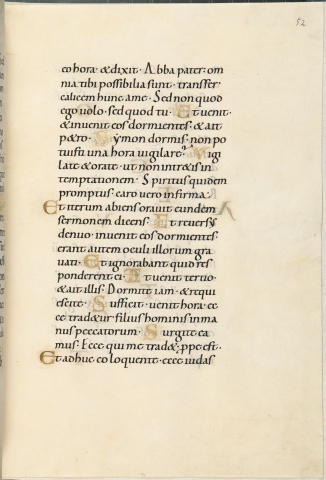 52
eo hora· & dixit· Abba pater· om
nia tibi possibilia sunt· transfer
calicem hunc a me· Sed non quod
ego volo· sed quod tu· Et venit·
& invenit eos dormientes· & ait
p&ro· Symon dormis· non po
tuisti una hora vigilare· Vigi
late & orate· ut non intr&is in
temptationem· Spiritus quidem
promptus· caro vero infirma·
Et iterum abiens oravit eundem
sermonem dicens· Et reversus
denuo· invenit eos dormientes·
erant autem oculi illorum gra
vati· Et ignorabant quid res
ponderent ei· Et venit tertio·
& ait illis· Dormite iam· & requi
escite· Sufficit· venit hora· ec
ce trad&ur filius hominis in ma
nus peccatorum· Surgite ea
mus· Ecce qui me trad&· ppe est·
Et adhuc eo loquente· ecce iudas